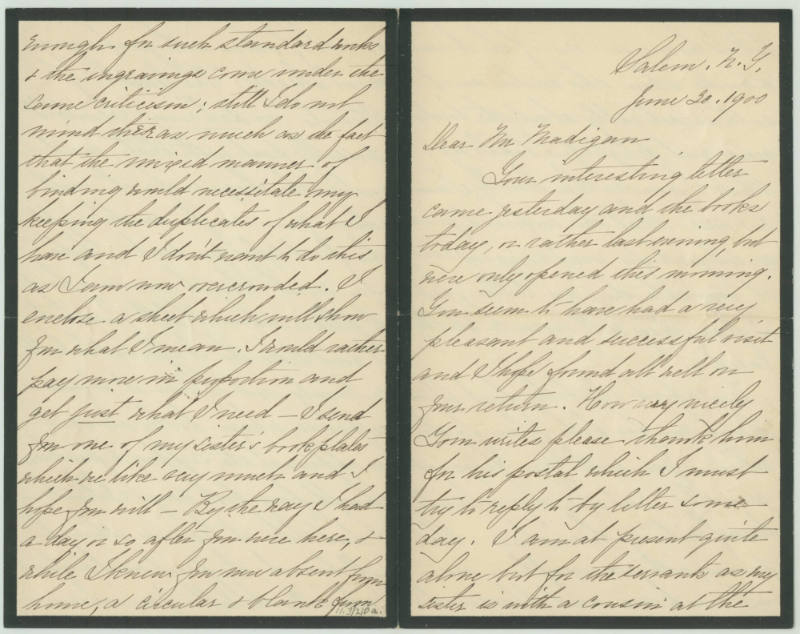 enough for such standard works
& the engravings come under the
same criticism; still I do not
mind this as much as the fact
that the mixed manner of
binding would necessitate my
keeping the duplicates of what I
have and I don't want to do this
as I am now overcrowded. I
enclose a sheet which will show
you what I mean. I would rather
pay more in proportion and
get just what I need – I send
you one of my sister's bookplates
which we like very much and I
hope you will – By the way I had
a day or so after you were here, &
while I knew you were absent from
home, a circular & blank from
Salem. N.Y.
June 20. 1900
Dear Mr Madigan
Your interesting letter
came yesterday and the books
today, or rather last evening, but
were only opened this morning.
You seem to have had a very
pleasant and successful visit
and I hope found all well on
your return. How very nicely
Tom writes please thank him
for his postal which I must
try to reply to by letter some
day. I am at present quite
alone but for the servants as my
sister is with a cousin at the